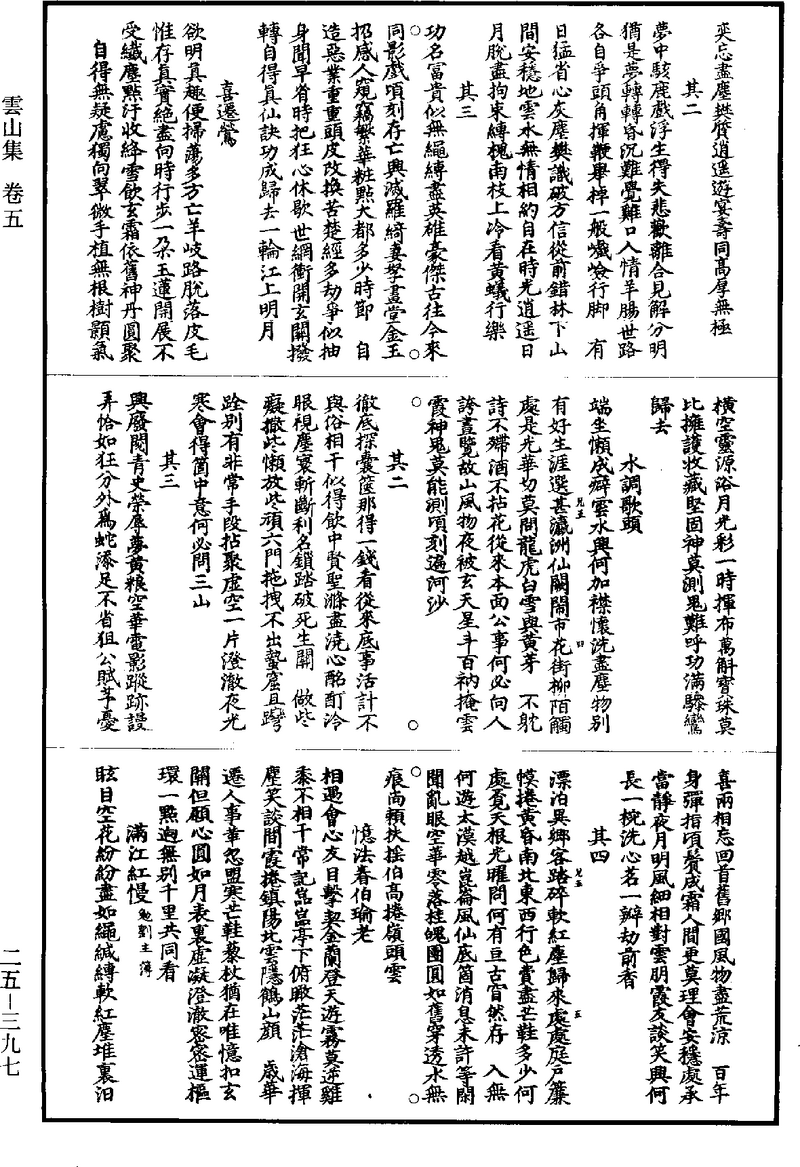 奕忘盡塵樊質逍遥遊宴壽同高厚無極
其二
夢中駭鹿戲浮生得失悲歡離合見解分明
猶是夢轉轉昏沉難覺難口人情羊腸世路
各自爭頭角揮鞭舉棹一般巇嶮行脚　有
日猛省心灰塵樊識破方信從前錯林下山
間安穩地雲水無情相約自在時光逍遥日
月脫盡拘束縛槐南枝上冷看黄蟻行樂
其三
功名冨貴似無繩縛盡英雄豪傑古往今來
同影戲頃刻存亡興滅羅綺妻孥畫堂金玉
惑人窺竊繁華粧點大都多少時節　自
造惡業重重頭皮改換苦楚經多劫爭似抽
身聞早省時把狂心休歇世網衝開玄關撥
轉自得真仙訣功成歸去一輪江上明月
喜遷鶯
欲明真趣便掃蕩多方亡羊岐路脫落皮毛
惟存真實絶盡向時行步一朶玉蓮開展不
受纖塵點汙收絳雪飲玄霜依舊神丹圓聚
自得無疑慮獨向翠微手植無根樹顥氣
橫空靈源浴月光彩一時揮布萬斛寶珠莫
比擁護收藏堅固神莫測鬼難呼功滿驂鸞
歸去
水調歌頭
端坐懶成癖雲水興何加襟懷洗盡塵物別
有好生涯選甚瀛洲仙闕鬧市花街柳陌觸
處是光華切莫問龍虎白雪與黄芽　不躭
詩不殢酒不拈花從來本面公事何必向人
誇晝覽故山風物夜被玄天星斗百衲掩雲
霞神鬼莫能測頃刻遍河沙
其二
徹底探囊篋那得一錢看從來底事活計不
與俗相干似得飲中賢聖滌盡澆心酩酊冷
眼視塵寰斬斷利名鎖踏破死生關　做些
癡撒些懶放些頑六門拖拽不出蟄窟且蹣
跧別有非常手段拈聚虛空一片澄澈夜光
寒會得箇中意何必問三山
其三
興廢閱青史榮辱夢黄粮空華電影蹤跡謾
弄恰如狂分外爲蛇添足不省狙公賦芧憂
喜兩相忘回首舊郷國風物盡荒涼　百年
身彈指頃鬢成霜人間更莫理會安穩處承
當靜夜月明風細相對雲朋霞友談笑興何
長一椀洗心茗一瓣劫前香
其四
漂泊異郷客踏碎軟紅塵歸來處處庭户簾
幙捲黄昏南北東西行色費盡芒鞋多少何
處覔天根光曜問何有亘古窅然存　入無
何遊太漠越崑崙風仙底箇消息未許等閑
聞亂眼空華零落桂魄團圓如舊穿透水無
痕尚賴扶摇伯高捲嶺頭雲
憶法眷伯瑜老
相遇會心友目擊契金蘭登天遊霧莫逆雞
黍不相干常記嵓嵓亭下俯瞰茫茫滄海揮
塵笑談間霞捲鎮陽北雲隱鶴山顔　歲華
遷人事華忽盟寒芒鞋藜杖猶在唯憶扣玄
關但願心圓如月表裏虛凝澄澈密密運樞
環一點逈無別千里共同看
滿江紅慢 勉劉主簿
眩目空花紛紛盡如繩緘縛軟紅塵堆裏汨
雲山集　卷五
二五—三九七